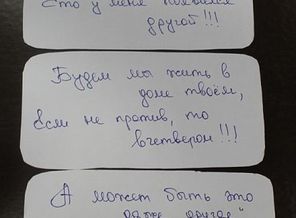 Что у меня появился
другой!!!
Будем мы жить в
доме твоём,
Если не против, то
вчетвером!!!
А может быть это
даже другая"